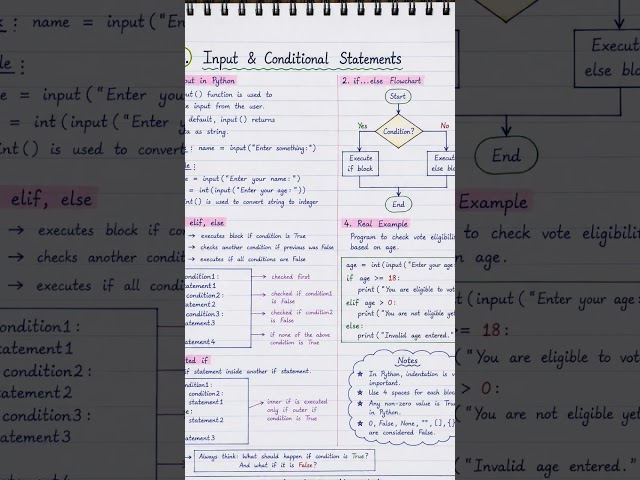 . Input & Conditional Statements
put in Python
put() function is used to
e input from the user.
default, input() returns
ta as string.
: name = input("Enter something:")
le :
e = input("Enter your name:")
= int(input("Enter your age:"))
int() is used to convert string to integer
2. if...else Flowchart
Start
Yes
Condition?
No
Execute
if block
Execu
else b
End
elif, else
→ executes block if condition is True
→ checks another condition if previous was False
→ executes if all conditions are False
condition1:
tatement1
condition2:
tatement2
condition3:
tatement3
tatement4
→ checked first
→ checked if condition1
is False
→ checked if condition2
is False
→ if none of the above
condition is True
4. Real Example
Program to check vote eligibili
based on age.
age = int(input("Enter your age
if age >= 18:
print("You are eligible to vot
elif age > 0:
print("You are not eligible ye
else:
print("Invalid age entered."
ted if
if statement inside another if statement.
ndition1:
condition2:
statement1
e:
statement2
tatement3
→ inner if is executed
only if outer if
condition is True
Notes
★ In Python, indentation is v
important.
★ Use 4 spaces for each bloc
★ Any non-zero value is Tru
in Python.
★ 0, False, None, "", [], {}
are considered False.
Always think: What should happen if condition is True?
And what if it is False?
: name = input("En
le :
e = input("Enter you
= int(input("Enter y
int() is used to convert
elif, else
→ executes block if co
→ checks another condi
→ executes if all condi
condition1:
tatement1
condition2:
tatement2
condition3:
tatement3
Execut
else bloc
End
Example
to check vote eligibilit
age.
t(input("Enter your age
= 18:
"You are eligible to vot
> 0:
"You are not eligible yet
("Invalid age entered."